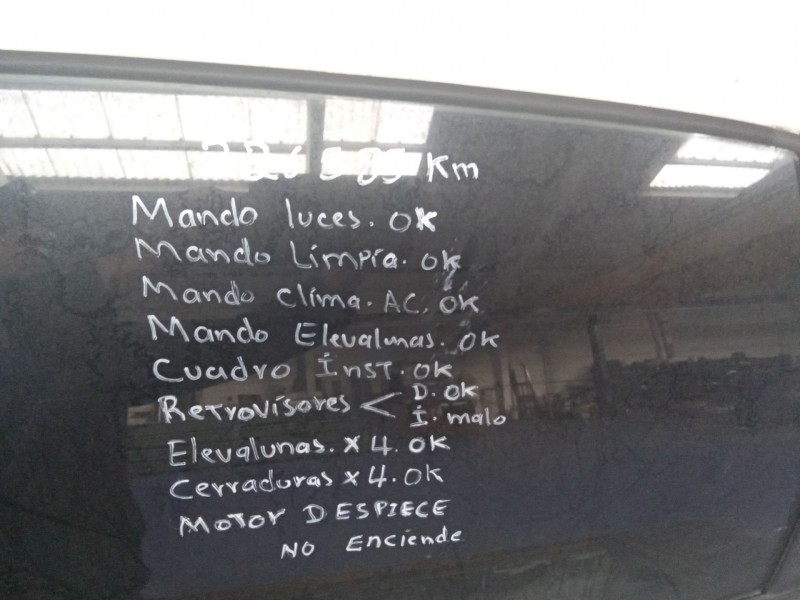 Km
Mando luces. OK
Mando Limpia. OK
Mando clima. AC. OK
Mando Elevalunas. OK
Cuadro Inst. OK
Retrovisores < D. OK
I. malo
Elevalunas. x 4. OK
Cerraduras x 4. OK
MOTOR DESPIECE
NO Enciende